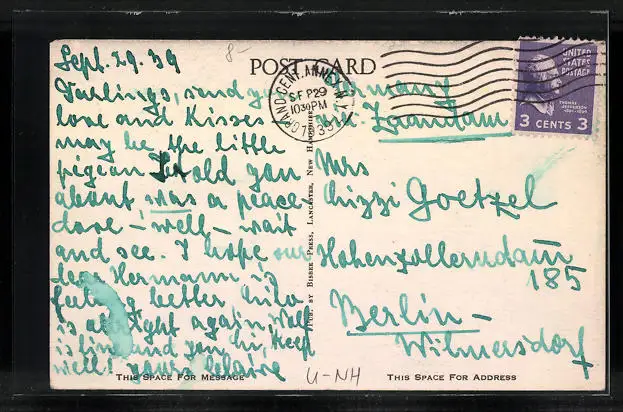 Sept. 29. 39
8-
POST CARD
GRAND CENT. ANNEX, N.Y.
SEP 29
1030 PM
1939
UNITED
STATES
POSTAGE
THOMAS
JEFFERSON
3 CENTS 3
Darlings, send you many
love and Kisses -
may be the little
pigeon I told you
about, was a peace-
dove - well - wait
and see. I hope our
dear Hermann is
feeling better
is allright again. Walt
is fine and you hu, Keep
well! yours Claire
Germany
via Zaandam
Mrs
Goetzel
Hohenzollerndam
185
Berlin -
Wilmersdorf
PUB. BY BISBEE PRESS, LANCASTER, NEW HAMPSHIRE
THIS SPACE FOR MESSAGE
U-NH
THIS SPACE FOR ADDRESS